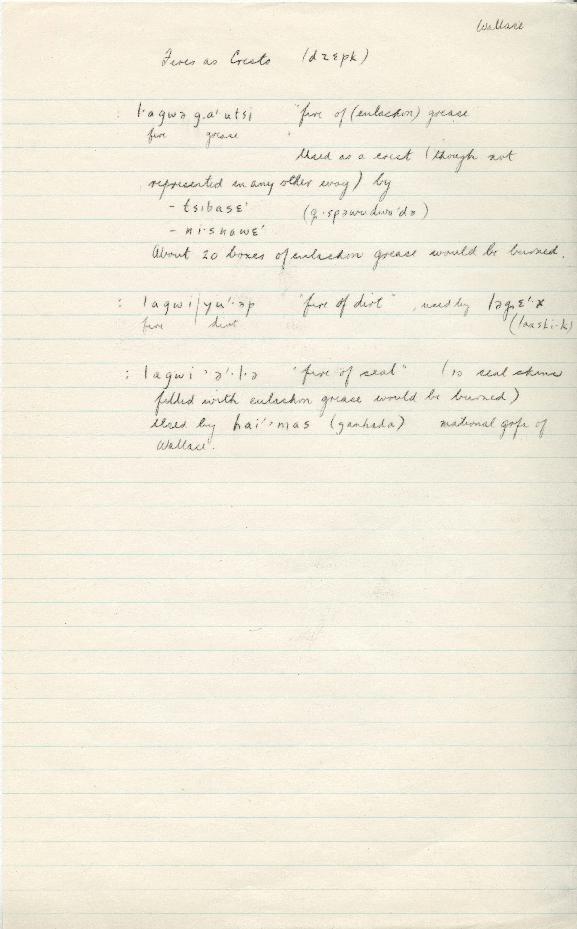 Wallace
Fires as Crests (dzɛpk)
: l·agwə g.a'utsi "fire of (eulachon) grease
fire grease
Used as a crest (though not
represented in any other way) by
- tsibasɛ' (g·spəwudwa'də)
- ni·snawɛ'
About 20 boxes of eulachon grease would be burned.
: lagwi|yu'·əp "fire of dirt" , used by ləg.ɛ'·x
fire dirt (laaski·k)
: lagwi·ə'·l·ə "fire of seal" (10 seal skins
filled with eulachon grease would be burned)
Used by hai'·mas (ganhada) maternal gdfr of
Wallace.